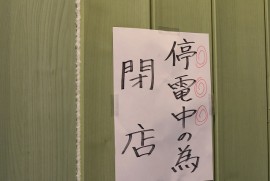 停電中の為
閉店